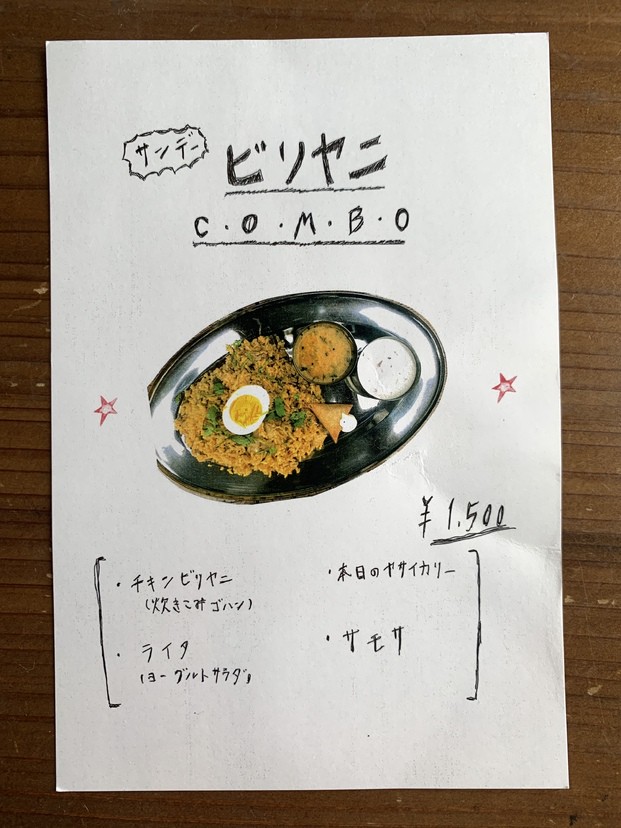 サンデー
ビリヤニ
C・O・M・B・O
¥1,500
・チキンビリヤニ
(炊きこみゴハン)
・ライタ
(ヨーグルトサラダ)
・本日のヤサイカリー
・サモサ